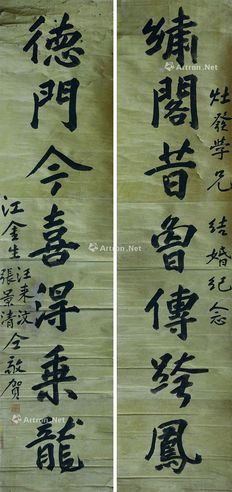 灶發學兄 結婚紀念
繡閣昔曾傳跨鳳
德門今喜得乘龍
江金生
張景清
仝敬賀
Artron.Net
Artron.Net
Artron.Net
Artron.Net